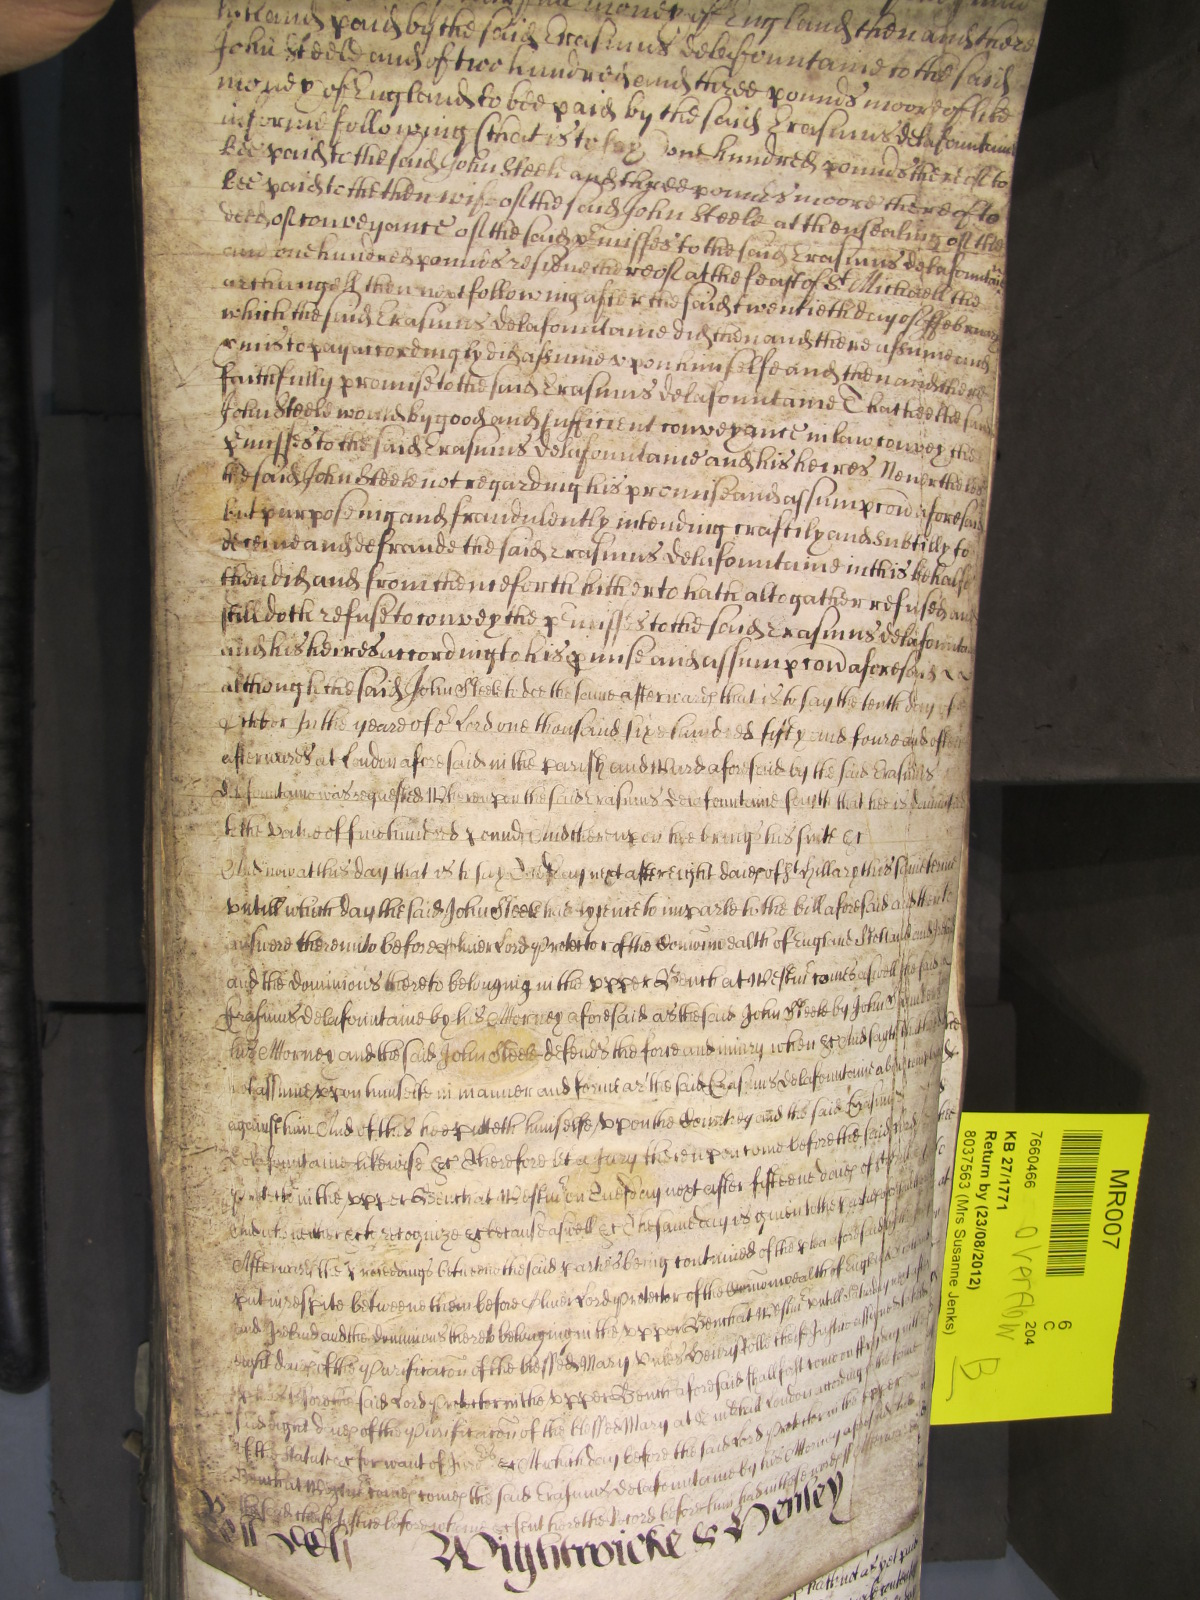 money of England then and there
paid by the said Erasmus delafountaine to the said
John Steele and of two hundred and three pounds moore of like
money of England to bee paid by the said Erasmus delafountaine
in forme following (that is to say) one hundred pounds thereof to
bee paid to the said John Steele and three pounds moore thereof to
bee paid to the then wife of the said John Steele at thensealing of the
deed of conveyance of the said pmisses to the said Erasmus delafountaine
and one hundred pounds residue thereof at the feast of St Michaell the
archangell then next following after the said twentieth day of ffebruary
which the said Erasmus delafountaine did then and there assume and
pmis to pay accordingly did assume upon himselfe and then and there
faithfully promise to the said Erasmus delafountaine That hee the said
John Steele would by good and sufficient conveyance in law convey the
pmisses to the said Erasmus delafountaine and his heires Neverthelesse
the said John Steele not regarding his promise and assumpcon aforesaid
but purposeing and fraudulently intending craftily and subtilly to
deceive and defraude the said Erasmus delafountaine in this behalfe
then did and from thenceforth hitherto hath altogather refused and
still doth refuse to convey the pmisses to the said Erasmus delafountaine
and his heires according to his pmise and assumpcon aforesaid
although the said John Steele to doe the same afterwards that is to say the tenth day of
October In the yeare of or Lord one thousand six hundred fifty and foure and often
afterwards at London aforesaid in the parish and Ward aforesaid by the said Erasmus
delafountaine was requested Whereupon the said Erasmus delafountaine saith that hee is damnified
to the value of five hundred pounds And thereupon hee brings his suite &c
And now at this day that is to say next after eight daies of St Hillary this same terme
untill which day the said John Steele had lycence to imparle to the bill aforesaid and then to
answere thereunto before Oliver Lord Protector of the Comonwealth of England Scotland and Ireland
and the dominions thereto belonging in the upper Bench at Westmr comes aswell the said
Erasmus delafountaine by his Attorney aforesaid as the said John Steele by John
his Attorney and the said John Steele defends the force and iniury when &c And sayth that hee did
not assume upon himselfe in manner and forme as the said Erasmus delafountaine above complaineth
against him And of this hee putteth himselfe upon the Countrey and the said Erasmus
delafountaine likewise &c Therefore let a Jury thereupon come before the said Lord
Protector in the upper Bench at Westmr on next after fifteene daies of
And who neither &c to recognize &c because aswell &c The same day is given to the parties aforesaid
Afterwards the proceedings betweene the said parties being continued of the plea aforesaid
put in respite betweene them before Oliver Lord Protector of the Comonwealth of England
and Ireland and the dominions thereto belonging in the upper Bench at Westmr untill next after
eight daies of the Purificacon of the blessed Mary unles Henry Rolle cheife Justice assigned
before the said Lord Protector in the upper Bench aforesaid shall first come on
eight daies of the Purificacon of the blessed Mary at London according to the forme
of the statute &c for want of Jurors &c At which day before the said Lord Protector in the upper
Bench at Westmr comes the said Erasmus delafountaine by his Attorney aforesaid
cheife Justice before whome &c sent here the Record before him had in these words
Wightwicke & Henley
MR007
6
C
204
7660466
KB 27/1771
Return by (23/08/2012)
8037563 (Mrs Susanne Jenks)
Overflow
B